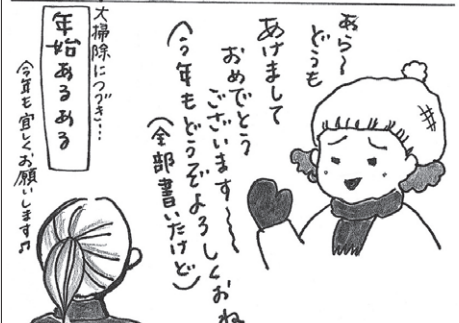 あら〜
どうも
あけまして
おめでとう
ございます〜〜
(今年もどうぞよろしくおね
(全部書いたけど)
大掃除につづき…
年始あるある
今年も宜しくお願いします♫